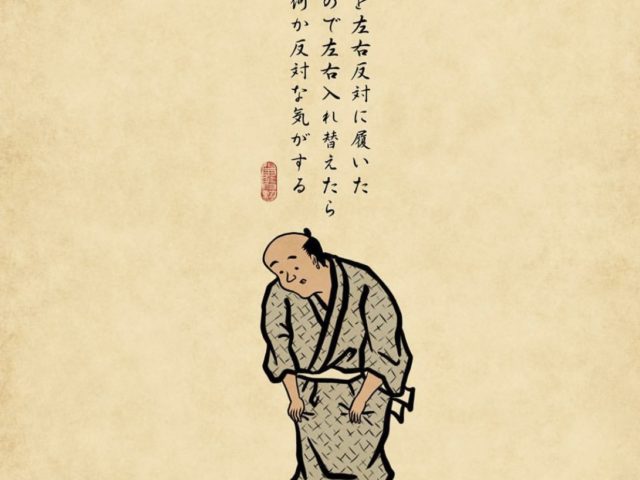 を左右反対に履いた
ので左右入れ替えたら
何か反対な気がする